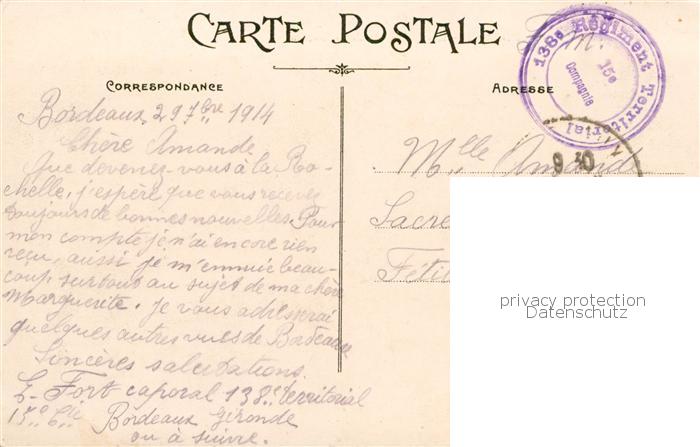 CARTE POSTALE
CORRESPONDANCE
ADRESSE
F. M.
138e Régiment Territorial
15e
Compagnie
9 30
Bordeaux, 29 7bre 1914
Chère Amande
Que devenez-vous à la Ro-
chelle, j'espère que vous recevez
toujours de bonnes nouvelles. Pour
mon compte je n'ai encore rien
reçu, aussi je m'ennuie beau-
coup surtout au sujet de ma chère
Marguerite. Je vous adresserai
quelques autres vues de Bordeaux
Sincères salutations.
E. Fort caporal 138e territorial
15e Cie Bordeaux Gironde
ou à suivre.
Mlle Amande
Sacre
Fétil
privacy protection
Datenschutz